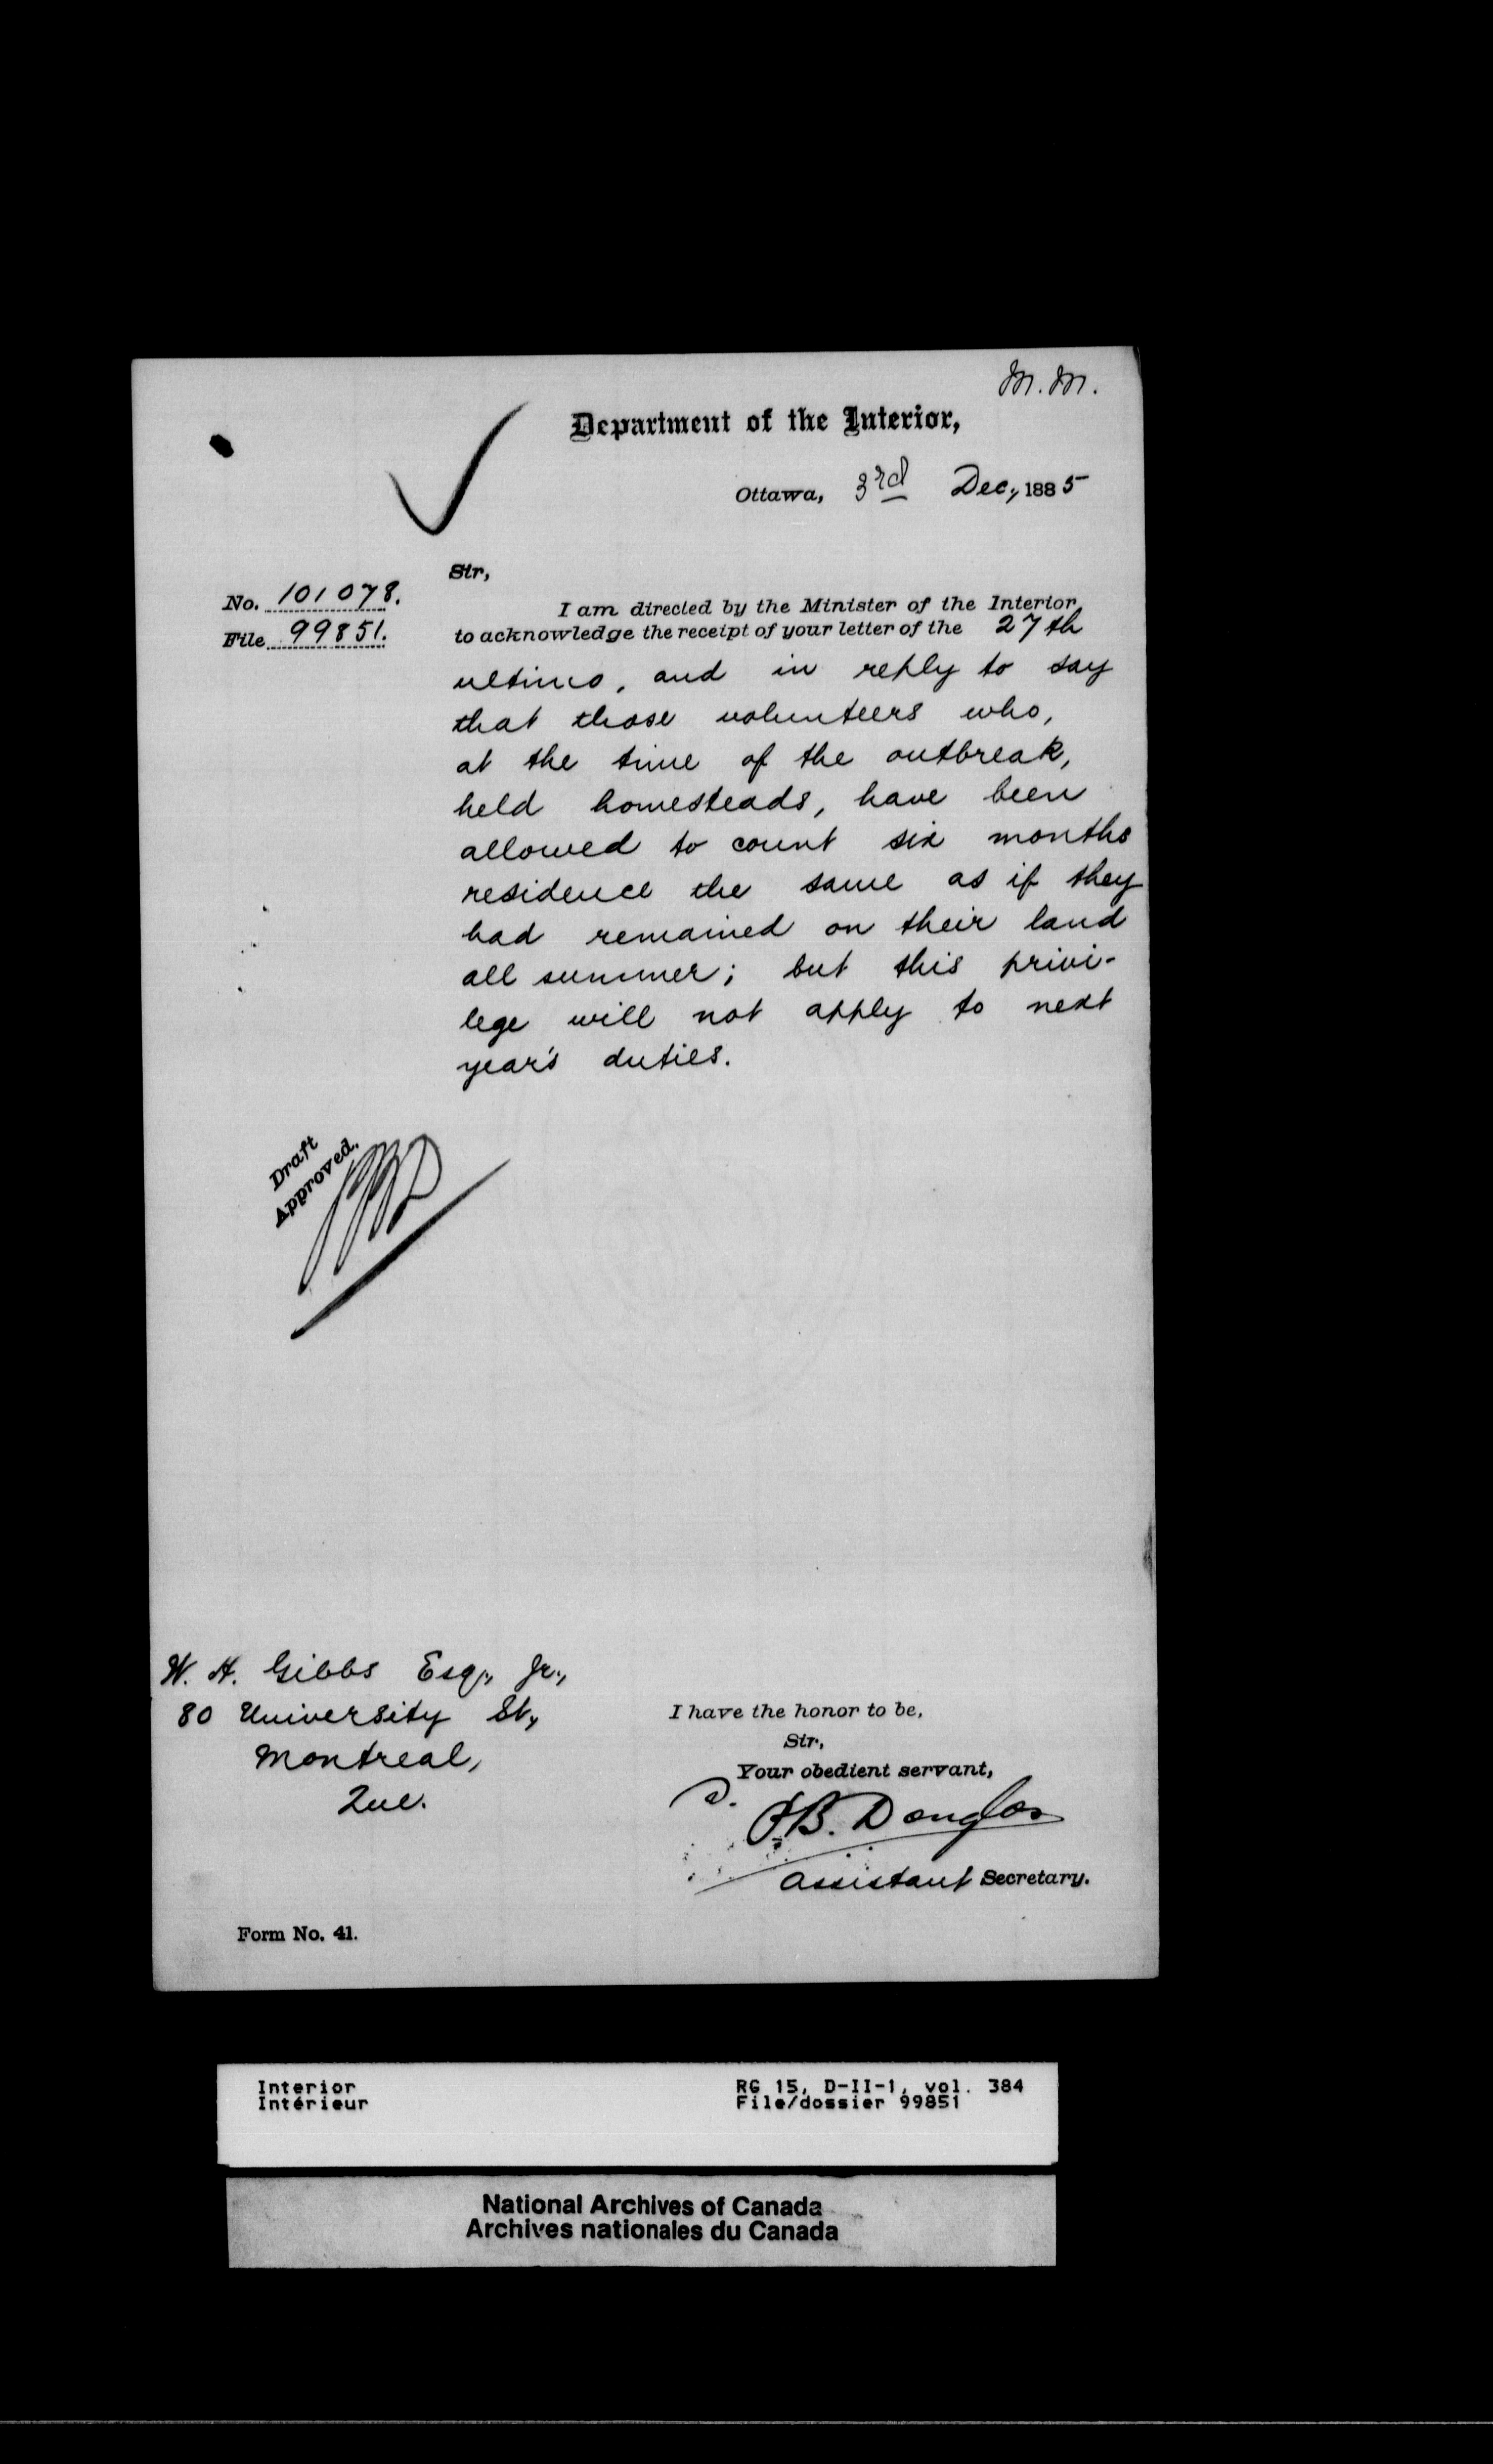 M.M.
Department of the Interior,
Ottawa, 3rd Dec., 1885
No. 101078.
File 99851.
Sir,
I am directed by the Minister of the Interior
to acknowledge the receipt of your letter of the 27th
ultimo, and in reply to say
that those volunteers who,
at the time of the outbreak,
held homesteads, have been
allowed to count six months
residence the same as if they
had remained on their land
all summer; but this privi-
lege will not apply to next
year's duties.
Draft
Approved.
W. H. Gibbs Esq., Jr.,
80 University St,
Montreal,
Que.
I have the honor to be,
Sir,
Your obedient servant,
P.B. Douglas
Assistant Secretary.
Form No. 41.
Interior
Intérieur
RG 15, D-II-1, vol. 384
File/dossier 99851
National Archives of Canada
Archives nationales du Canada